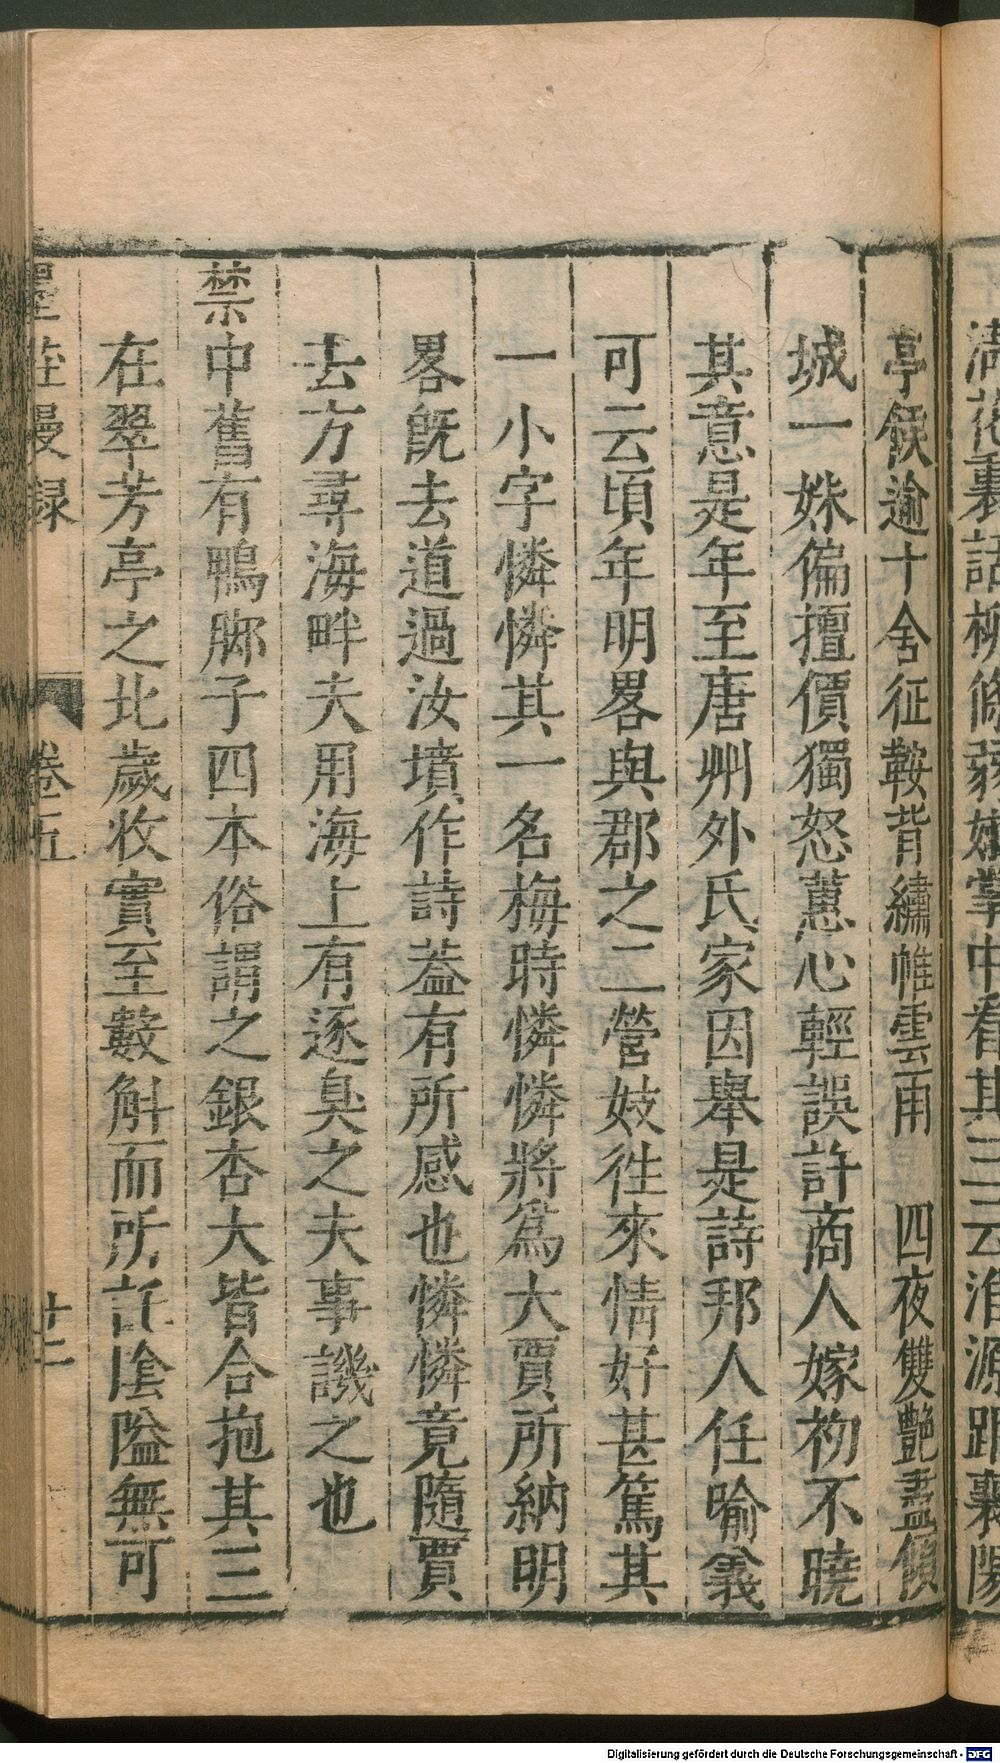 滿花裏話柳條藂嫩掌中看其三云淮源距襄陽
亭餱逾十舍征鞍背繡帷雲雨四夜雙艷盡傾
城一姝偏擅價獨怒蕙心輕誤許商人嫁初不曉
其意是年至唐州外氏家因舉是詩邦人任喻義
可云頃年明畧與郡之二營妓徃來情好甚篤其
一小字憐憐其一名梅時憐憐將爲大賈所納明
畧旣去道過汝墳作詩葢有所感也憐憐竟隨賈
去方尋海畔夫用海上有逐臭之夫事譏之也
禁中舊有鴨脚子四本俗謂之銀杏大皆合抱其三
在翠芳亭之北歲收實至數斛而所託陰隘無可
墨莊漫録 卷五 廿二
Digitalisierung gefördert durch die Deutsche Forschungsgemeinschaft - DFG